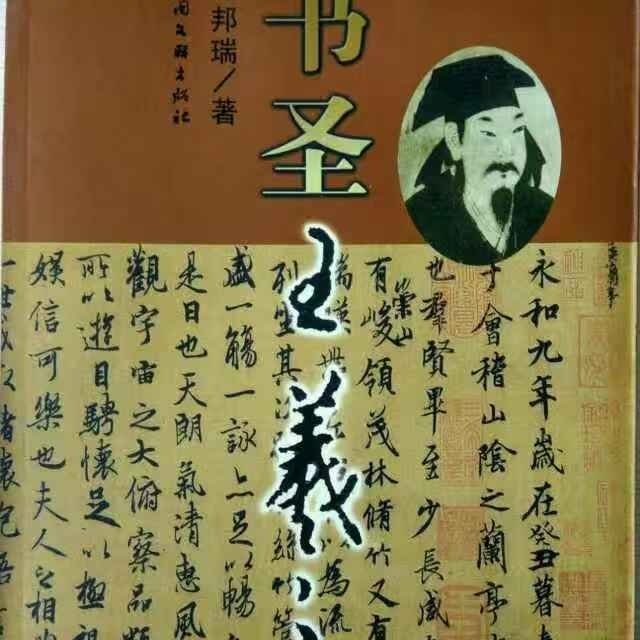 书圣
王羲
邦瑞／著
文联出版社
永和九年歲在癸丑暮
會稽山陰之蘭亭
也羣賢畢至少長咸
有崇山峻領茂林脩竹又有
湍 為流
列坐其 絲竹管
盛一觴一詠亦足以暢
是日也天朗氣清惠風
觀宇宙之大俯察品類
所以遊目騁懷足以極視
娛信可樂也夫人之相